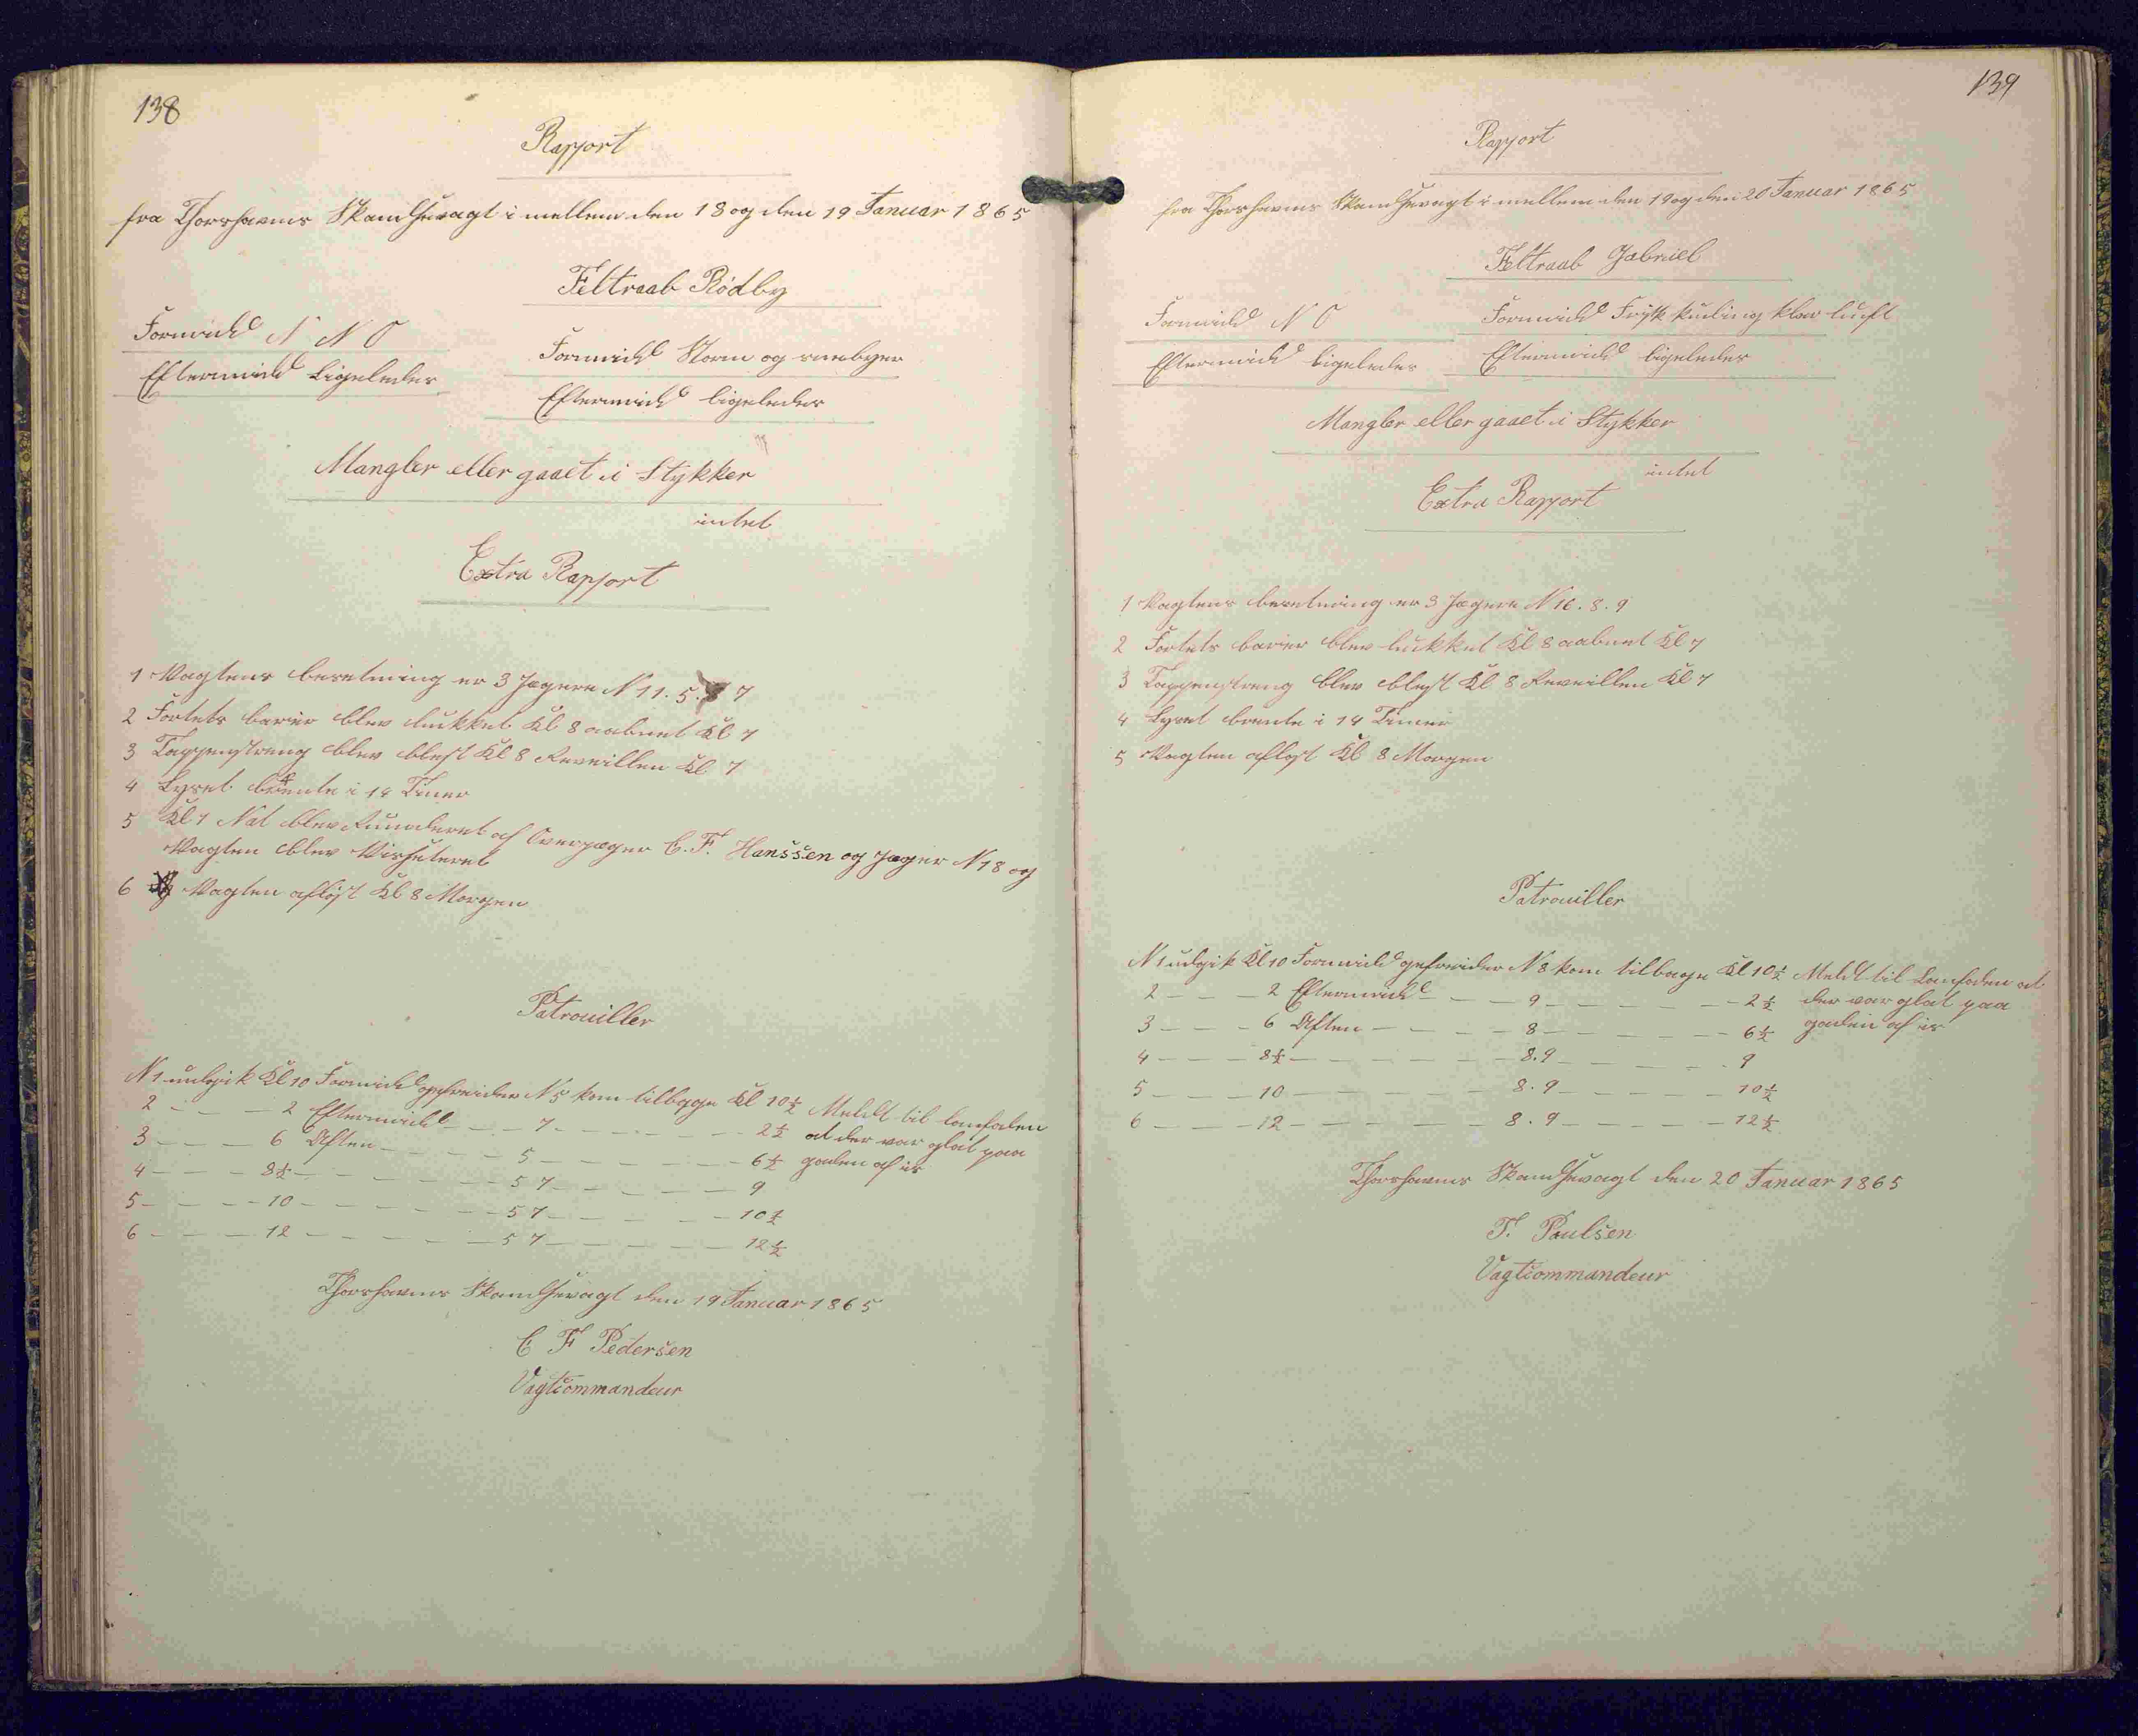 138
Rapport
fra Thorshavns Skandsevagt i mellem den 18 og den 19 Januar 1865
Feltraab Rødby
Formidd N N O
Eftermidd ligeledes
Formidd Storm og sneebyer
Eftermidd ligeledes
Mangler eller gaaet i Stykker
intet
Extra Rapport
1 Vagtens besetning er 3 Jægere N 11. 5. 7
2 Fortets barier blev lukket Kl 8 aabnet Kl 7
3 Tappenstreng blev blest Kl 8 Reveillen Kl 7
4 Lyset brente i 14 Timer
5 Kl 1 Nat blev Runderet af Overjæger C. F. Hanssen og Jæger N 18 og
Vagten blev Visiteret
6 Vagten afløst Kl 8 Morgen
Patrouiller
N 1 udgik Kl 10 Formidd gefreider N 5 kom tilbage Kl 10½ Meldt til lanfoden
2 - - - 2 Eftermidd - - 7 - - - - - 2½ at der var glat paa
3 - - - 6 Aften - - - - 5 - - - - - 6½ gaden af is
4 - - - 8½ - - - - - 5 7 - - - - 9
5 - - - 10 - - - - - 5 7 - - - - 10½
6 - - - 12 - - - - - 5 7 - - - - 12½
Thorshavns Skandsevagt den 19 Januar 1865
C F Pedersen
Vagtcommandeur
139
Rapport
fra Thorshavns Skandsevagt i mellem den 19 og den 20 Januar 1865
Feltraab Gabriel
Formidd N O
Formidd Frysk kuling klar luft
Eftermidd ligeledes
Eftermidd ligeledes
Mangler eller gaaet i Stykker
intet
Extra Rapport
1 Vagtens besetning er 3 Jægere N 16. 8. 9
2 Fortets barier blev lukket Kl 8 aabnet Kl 7
3 Tappenstreng blev blest Kl 8 Reveillen Kl 7
4 Lyset brente i 14 Timer
5 Vagten afløst Kl 8 Morgen
Patrouiller
N 1 udgik Kl 10 Formidd gefreider N 8 kom tilbage Kl 10½ Meldt til Lanfoden at
2 - - - 2 Eftermidd - - - 9 - - - - - 2½ der var glat paa
3 - - - 6 Aften - - - - 8 - - - - - 6½ gaden af is
4 - - - 8½ - - - - - 8. 9 - - - - 9
5 - - - 10 - - - - - 8. 9 - - - - 10½
6 - - - 12 - - - - - 8. 9 - - - - 12½
Thorshavns Skandsevagt den 20 Januar 1865
T. Poulsen
Vagtcommandeur